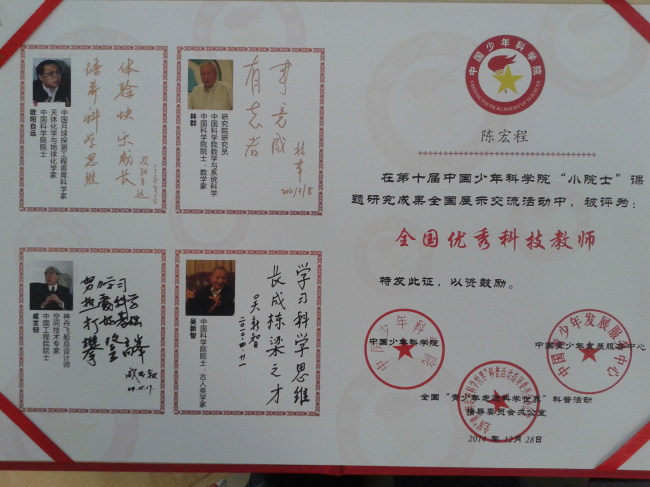 体验快乐成长
培养科学思维
欧阳自远
中国月球探测工程首席科学家
天体化学与地球化学家
中国科学院院士
欧阳自远
有志者
事竟成
林群
研究院研究员
中国科学院数学与系统科学
中国科学院院士、数学家
林群
努力学习
热爱科学
打好基础
攀登高峰
戚发轫
神舟飞船总设计师
空间技术专家
中国工程院院士
戚发轫
学习科学思维
长成栋梁之才
吴新智
中国科学院院士、古人类学家
吴新智
中国少年科学院
CHINESE YOUTH ACADEMY OF SCIENCES
陈宏程
在第十届中国少年科学院“小院士”课
题研究成果全国展示交流活动中，被评为：
全国优秀科技教师
特发此证，以资鼓励。
中国少年科学院
中国少年科学院
中国青少年发展服务中心
中国青少年发展服务中心
全国“青少年走进科学世界”科普活动
指导委员会办公室
2014 年 12月 28日